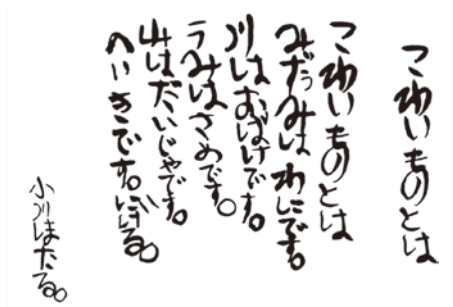 こわいものとは
こわいものとは
みずうみは わにです。
川はおばけです。
うみはさめです。
山はだいじゃです。
へいきです。にげる。
小川ほたる。